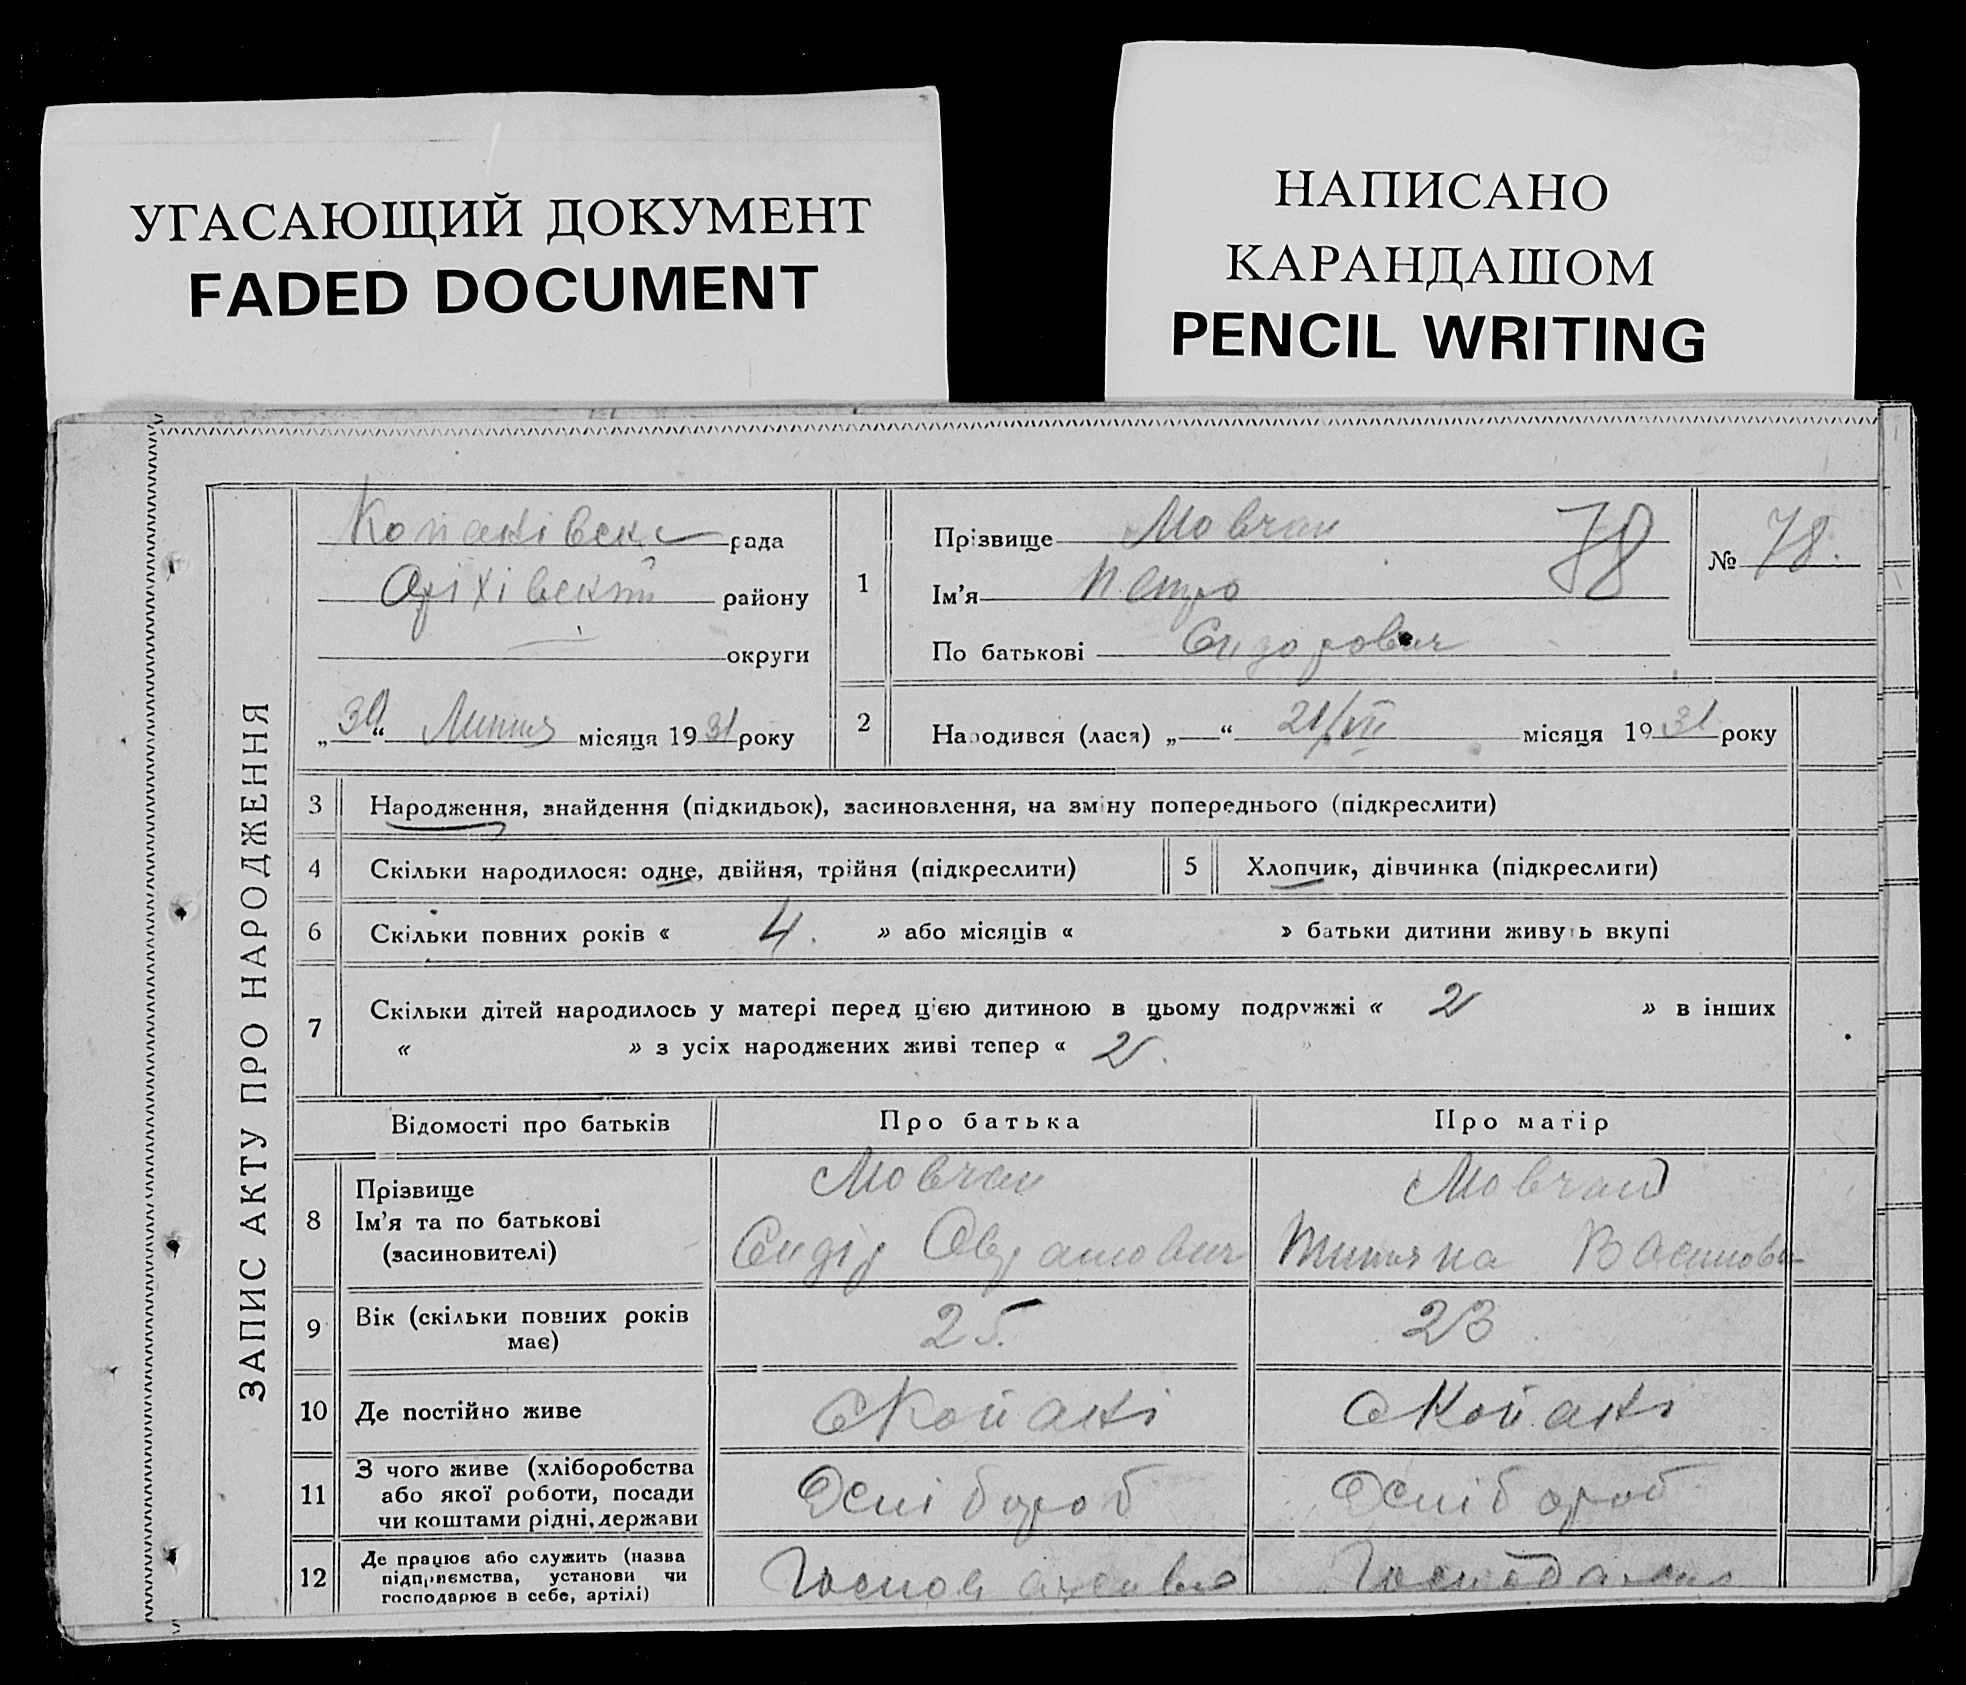 УГАСАЮЩИЙ ДОКУМЕНТ
FADED DOCUMENT
НАПИСАНО
КАРАНДАШОМ
PENCIL WRITING
ЗАПИС АКТУ ПРО НАРОДЖЕННЯ
Копанівська рада
Оріхівський району
округи
„30“ Липня місяця 1931 року
1
Прізвище Мовчан
Ім'я Петро
По батькові Сидорович
78
№ 78.
2
Народився (лася) „ “ 21/VII місяця 1931 року
3 Народження, знайдення (підкидьок), засиновлення, на зміну попереднього (підкреслити)
4 Скільки народилося: одне, двійня, трійня (підкреслити)
5 Хлопчик, дівчинка (підкреслити)
6 Скільки повних років « 4. » або місяців « » батьки дитини живуть вкупі
7 Скільки дітей народилось у матері перед цією дитиною в цьому подружжі « 2 » в інших
« » з усіх народжених живі тепер « 2.
Відомості про батьків
Про батька
Про матір
8
Прізвище
Ім'я та по батькові
(засиновителі)
Мовчан
Сидір
Мовчан
9
Вік (скільки повних років
має)
25.
23
10 Де постійно живе
с Копані
с Копані
11
З чого живе (хліборобства
або якої роботи, посади
чи коштами рідні, держави
12
Де працює або служить (назва
підприємства, установи чи
господарює в себе, артілі)